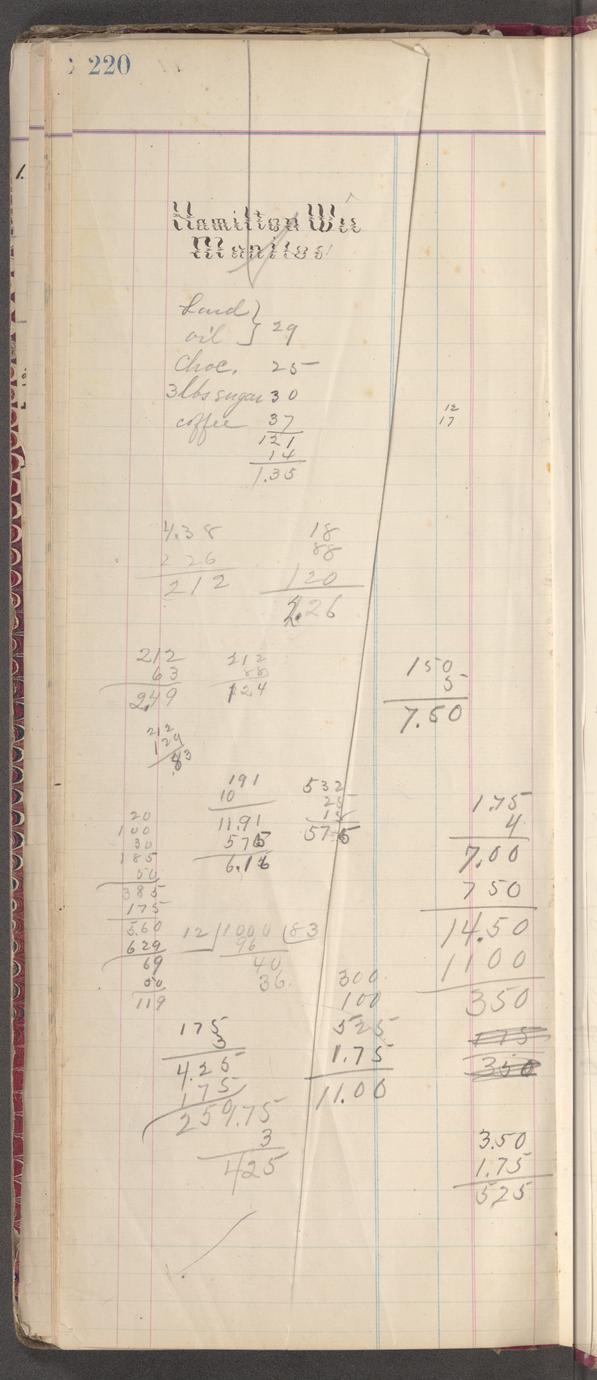 220
Hamilton Wii
Manitos
Lard
oil } 29
Choc. 25
3 lbs sugar 30
coffee 37
121
14
1.35
12
17
4.38
2 26
212
18
88
120
2.26
212
63
2.49
212
88
124
150
5
7.50
212
129
.83
191
10
11.91
575
6.16
532
25
18
575
1.75
4
7.00
7 50
14.50
11 00
350
175
350
20
100
30
185
50
385
175
5.60
629
69
50
119
12 1000 83
96
40
36
300
100
525
1.75
11.00
175
3
4.25
175
250
1.75
3
425
3.50
1.75
525